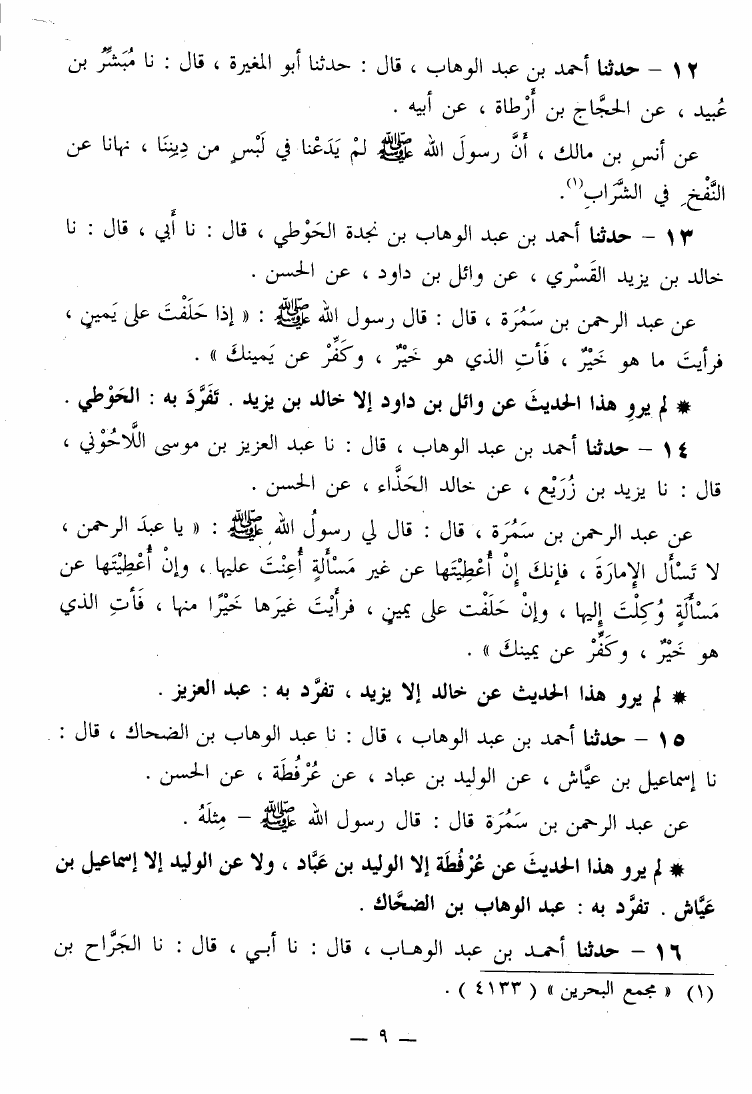 ١٢ – حدثنا أحمد بن عبد الوهاب ، قال : حدثنا أبو المغيرة ، قال : نا مُبَشِّرُ بن
عُبيد ، عن الحجَّاج بن أَرْطاة ، عن أبيه .
عن أنسِ بن مالك ، أنَّ رسولَ الله ﷺ لمْ يَدَعْنا في لَبْسٍ من دِينِنَا ، نهانا عن
النَّفْخِ في الشَّرَابِ(١).
١٣ – حدثنا أحمد بن عبد الوهاب بن نجدة الحَوْطي ، قال : نا أَبي ، قال : نا
خالد بن يزيد القَسْري ، عن وائل بن داود ، عن الحسن .
عن عبد الرحمن بن سَمُرَة ، قال : قال رسول الله ﷺ : « إذا حَلَفْتَ على يَمينٍ ،
فرأيتَ ما هو خَيْرٌ ، فَأتِ الذي هو خَيْرٌ ، وكَفِّرْ عن يَمينكَ » .
* لم يروِ هذا الحديثَ عن وائل بن داود إلا خالد بن يزيد . تَفَرَّدَ به : الحَوْطي .
١٤ – حدثنا أحمد بن عبد الوهاب ، قال : نا عبد العزيز بن موسى اللَّاحُوْني ،
قال : نا يزيد بن زُرَيْع ، عن خالد الحَذَّاء ، عن الحسن .
عن عبد الرحمن بن سَمُرَة ، قال : قال لي رسولُ الله ﷺ : « يا عبدَ الرحمن ،
لا تَسْأَل الإمارَةَ ، فإنكَ إنْ أُعْطِيْتَها عن غير مَسْألةٍ أُعِنْتَ عليها ، وإنْ أُعْطِيْتَها عن
مَسْأَلَةٍ وُكِلْتَ إليها ، وإنْ حَلَفْت على يمينٍ ، فرأَيْتَ غيرَها خَيْرًا منها ، فَأتِ الذي
هو خَيْرٌ ، وكَفِّرْ عن يمينكَ » .
* لم يرو هذا الحديث عن خالد إلا يزيد ، تفرَّد به : عبد العزيز .
١٥ – حدثنا أحمد بن عبد الوهاب ، قال : نا عبد الوهاب بن الضحاك ، قال :
نا إسماعيل بن عيَّاش ، عن الوليد بن عباد ، عن عُرْفُطَة ، عن الحسن .
عن عبد الرحمن بن سَمُرَة قال : قال رسول الله ﷺ – مِثلَهُ .
* لم يرو هذا الحديثَ عن عُرْفُطَة إلا الوليد بن عَبَّاد ، ولا عن الوليد إلا إسماعيل بن
عَيَّاش . تفرَّد به : عبد الوهاب بن الضحَّاك .
١٦ – حدثنا أحمـد بن عبد الوهـاب ، قال : نا أبـي ، قال : نا الجَرَّاح بن
(١) « مجمع البحرين » ( ٤١٣٣ ) .
– ٩ –